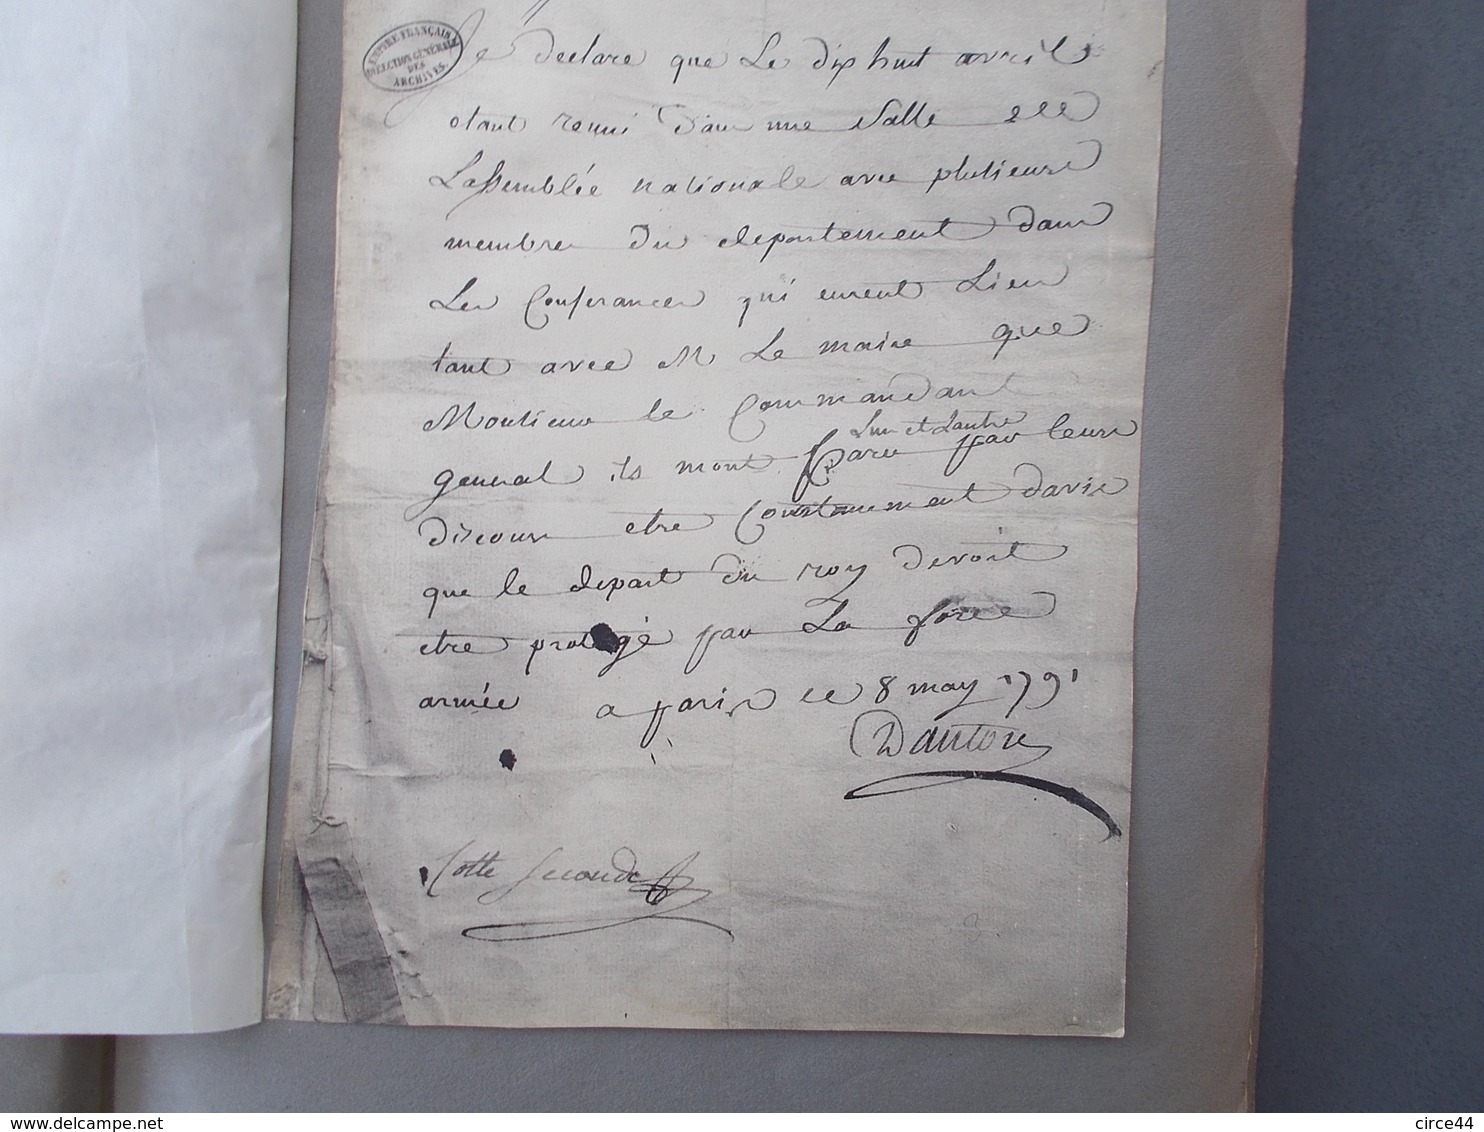 EMPIRE FRANÇAIS
DIRECTION GÉNÉRALE
DES
ARCHIVES.
Je declare que Le dix huit avril
etant reuni dans une Salle de
Lassemblée nationale avec plusieurs
membres du departement dans
Les Conferances qui eurent Lieu
tant avec M Le maire que
Monsieur le Commandant
Lun et Lautre
general ils mont paru par leurs
discours etre Constamment davis
que le depart du roy devoit
etre protegé par La force
armée a paris ce 8 may 1791
Danton
Cotte seconde
delcampe.net
circe44